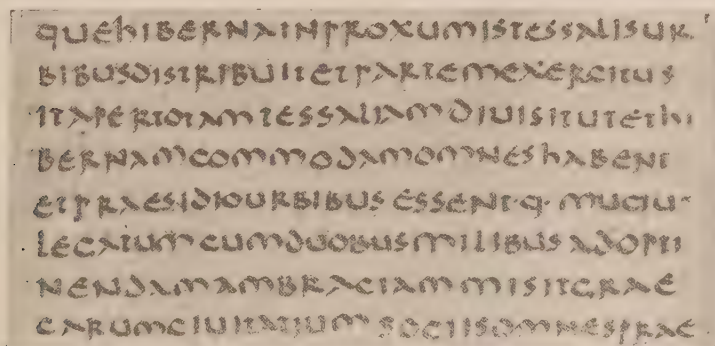 QUEHIBERNAINPROXUMISTESSALISUR
BIBUSDISTRIBUITETPARTEMEXERCITUS
ITAPERTOTAMTESSALIAMDIUISITUTETHI
BERNAMCOMMODAMOMNESHABENT
ETPRAESIDIOURBIBUS ESSENT·Q· MUCIU-
LEGATUMCUMDUOBUSMILIBUS ADOPTI
NENDAMAMBRACIAMMISITGRAE
CARUMCIUITATIUM SOCIISOMNESPRAE